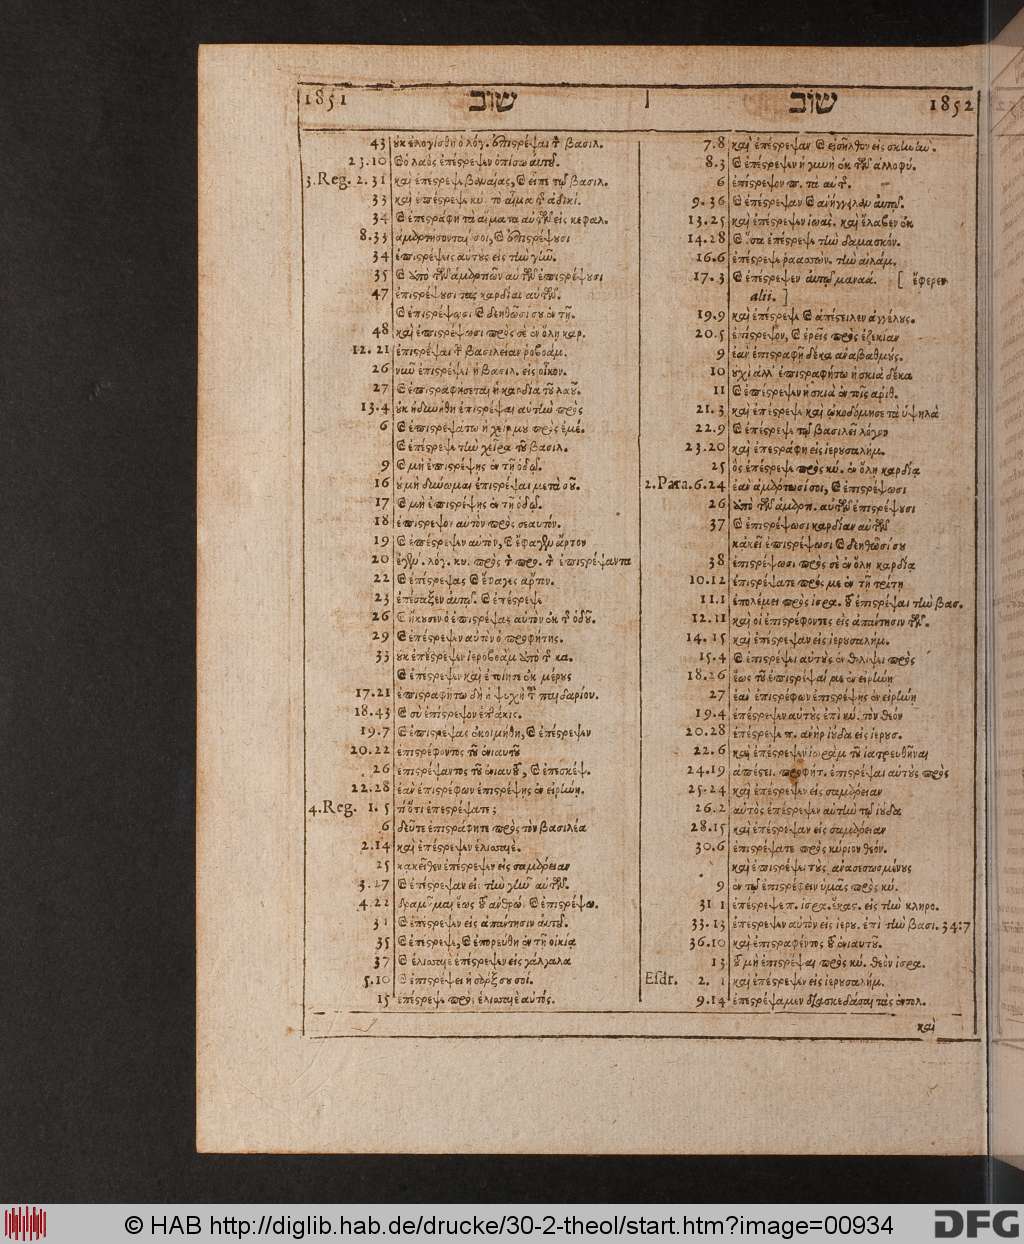 1851 שוב
43 ἐκ ἐλογίσθη ὁ λόγ. ἐπιςρέψαι τ͂ βασιλ.
23.10 Ꞓ ὁ λαὸς ἐπέςρεψεν ὀπίσω αὐτοῦ.
3.Reg. 2.31 καὶ ἐπέςρεψε βαναίας, Ꞓ εἶπε τῷ βασιλ.
33 καὶ ἐπέςρεψε κύ. τὸ αἷμα τ͂ ἀδικί.
34 Ꞓ ἐπεςράφη τὰ αἵματα αὐτῶν εἰς κεφαλ.
8.33 ἁμαρτήσονταί σοι, Ꞓ ἐπιςρέψουσι
34 ἐπιςρέψεις αὐτοὺς εἰς τὴν γῆν.
35 Ꞓ ἀπὸ τῶν ἁμαρτιῶν αὐτῶν ἐπιςρέψουσι
47 ἐπιςρέψουσι τὰς καρδίας αὐτῶν.
Ꞓ ἐπιςρέψωσι Ꞓ δεηθῶσί σου ἐν τῇ.
48 καὶ ἐπιςρέψωσι πρὸς σὲ ἐν ὅλῃ καρ.
12.21 ἐπιςρέψαι τ͂ βασιλείαν ῥοβοάμ.
26 νῦν ἐπιςρέψει ἡ βασιλ. εἰς οἶκον.
27 Ꞓ ἐπιςραφήσεται ἡ καρδία τοῦ λαοῦ.
13.4 οὐκ ἠδυνήθη ἐπιςρέψαι αὐτὴν πρὸς
6 Ꞓ ἐπιςρεψάτω ἡ χείρ μου πρὸς ἐμέ.
Ꞓ ἐπέςρεψε τὴν χεῖρα τοῦ βασιλ.
9 Ꞓ μὴ ἐπιςρέψῃς ἐν τῇ ὁδῷ.
16 οὐ μὴ δύνωμαι ἐπιςρέψαι μετὰ σοῦ.
17 Ꞓ μὴ ἐπιςρέψῃς ἐν τῇ ὁδῷ.
18 ἐπίςρεψον αὐτὸν πρὸς σεαυτόν.
19 Ꞓ ἐπέςρεψεν αὐτὸν, Ꞓ ἔφαγεν ἄρτον
20 ἐγέν. λόγ. κυ. πρὸς τ͂ προ. τ͂ ἐπιςρέψαντα
22 Ꞓ ἐπέςρεψας Ꞓ ἔφαγες ἄρτον.
23 ἐπέσαξεν αὐτῷ. Ꞓ ἐπέςρεψε
26 Ꞓ ἤκουσεν ὁ ἐπιςρέψας αὐτὸν ἐκ τ͂ ὁδοῦ.
29 Ꞓ ἐπέςρεψεν αὐτὸν ὁ προφήτης.
33 οὐκ ἐπέςρεψεν ἱεροβοὰμ ἀπὸ τ͂ κα.
Ꞓ ἐπέςρεψεν καὶ ἐποίησε ἐκ μέρους
17.21 ἐπιςραφήτω δὴ ἡ ψυχὴ τ͂ παιδαρίου.
18.43 Ꞓ σὺ ἐπίςρεψον ἑπτάκις.
19.7 Ꞓ ἐπιςρέψας ἐκοιμήθη, Ꞓ ἐπέςρεψεν
20.22 ἐπιςρέφοντος τοῦ ἐνιαυτοῦ
26 ἐπιςρέψαντος τοῦ ἐνιαυτοῦ, Ꞓ ἐπεσκέψ.
22.28 ἐὰν ἐπιςρέφων ἐπιςρέψῃς ἐν εἰρήνῃ.
4.Reg. 1.5 τί ὅτι ἐπεςρέψατε;
6 δεῦτε ἐπιςράφητε πρὸς τὸν βασιλέα
2.14 καὶ ἐπέςρεψεν ἐλισσαιέ.
25 κἀκεῖθεν ἐπέςρεψεν εἰς σαμάρειαν
3.27 Ꞓ ἐπέςρεψαν εἰς τὴν γῆν αὐτῶν.
4.22 δραμοῦμαι ἕως τοῦ ἀνθρώ. Ꞓ ἐπιςρέψω.
31 Ꞓ ἐπέςρεψεν εἰς ἀπάντησιν αὐτοῦ.
35 Ꞓ ἐπέςρεψε, Ꞓ ἐπορεύθη ἐν τῇ οἰκίᾳ
37 Ꞓ ἐλισσαιὲ ἐπέςρεψεν εἰς γάλγαλα
5.10 Ꞓ ἐπιςρέψει ἡ σάρξ σου σοί.
15 ἐπέςρεψε πρὸς ἐλισσαιὲ αὐτός.
שוב 1852
7.8 καὶ ἐπέςρεψαν Ꞓ εἰσῆλθον εἰς σκηνήν.
8.3 Ꞓ ἐπέςρεψεν ἡ γυνὴ ἐκ τῶν ἀλλοφύ.
6 ἐπίςρεψον π. τὰ αὐτ͂.
9.36 Ꞓ ἐπέςρεψαν Ꞓ ἀνήγγειλαν αὐτῷ.
13.25 καὶ ἐπέςρεψεν ἰωάς. καὶ ἔλαβεν ἐκ
14.28 Ꞓ ὅσα ἐπέςρεψε τὴν δαμασκόν.
16.6 ἐπέςρεψε ῥαασσὼν. τὴν αἰλάμ.
17.3 Ꞓ ἐπέςρεψεν αὐτῷ μαναά. [ ἔφερεν
alii. ]
19.9 καὶ ἐπέςρεψε Ꞓ ἀπέςειλεν ἀγγέλους.
20.5 ἐπίςρεψον, Ꞓ ἐρεῖς πρὸς ἐζεκίαν
9 ἐὰν ἐπιςραφῇ δέκα ἀναβαθμούς.
10 οὐχὶ ἀλλ' ἐπιςραφήτω ἡ σκιὰ δέκα
11 Ꞓ ἐπέςρεψεν ἡ σκιὰ ἐν τοῖς ἀριθ.
21.3 καὶ ἐπέςρεψε καὶ ᾠκοδόμησε τὰ ὑψηλὰ
22.9 Ꞓ ἐπέςρεψε τῷ βασιλεῖ λόγον
23.20 καὶ ἐπεςράφη εἰς ἱερουσαλήμ.
25 ὃς ἐπέςρεψε πρὸς κύ. ἐν ὅλῃ καρδίᾳ
2.Para. 6.24 ἐὰν ἁμάρτωσί σοι, Ꞓ ἐπιςρέψωσι
26 ἀπὸ τῶν ἁμαρτ. αὐτῶν ἐπιςρέψουσι
37 Ꞓ ἐπιςρέψωσι καρδίαν αὐτῶν
κἀκεῖ ἐπιςρέψωσι Ꞓ δεηθῶσί σου
38 ἐπιςρέψωσι πρὸς σὲ ἐν ὅλῃ καρδίᾳ
10.12 ἐπιςρέψατε πρός με ἐν τῇ τρίτῃ
11.1 ἐπολέμει πρὸς ἰσρα. τοῦ ἐπιςρέψαι τὴν βασ.
12.11 καὶ οἱ ἐπιςρέφοντες εἰς ἀπάντησιν τῶν.
14.15 καὶ ἐπέςρεψαν εἰς ἱερουσαλήμ.
15.4 Ꞓ ἐπιςρέψει αὐτοὺς ἐν θλίψει πρὸς
18.26 ἕως τοῦ ἐπιςρέψαί με ἐν εἰρήνῃ
27 ἐὰν ἐπιςρέφων ἐπιςρέψῃς ἐν εἰρήνῃ
19.4 ἐπέςρεψεν αὐτοὺς ἐπὶ κύ. τὸν θεόν
20.28 ἐπέςρεψε π. ἀνὴρ ἰούδα εἰς ἱερουσ.
22.6 καὶ ἐπέςρεψεν ἰωρὰμ τοῦ ἰατρευθῆναι
24.19 ἀπέςει. προφήτ. ἐπιςρέψαι αὐτοὺς πρὸς
25.24 καὶ ἐπέςρεψεν εἰς σαμάρειαν
26.2 αὐτὸς ἐπέςρεψεν αὐτὴν τῷ ἰούδα
28.15 καὶ ἐπέςρεψαν εἰς σαμάρειαν
30.6 ἐπιςρέψατε πρὸς κύριον θεόν.
καὶ ἐπιςρέψει τοὺς ἀνασεσωσμένους
9 ἐν τῷ ἐπιςρέφειν ὑμᾶς πρὸς κύ.
31.1 ἐπέςρεψε π. ἰσρα. ἕκας. εἰς τὴν κληρο.
33.13 ἐπέςρεψεν αὐτὸν εἰς ἱερου. ἐπὶ τὴν βασι. 34:7
36.10 καὶ ἐπιςρέφοντος τοῦ ἐνιαυτοῦ.
13 τοῦ μὴ ἐπιςρέψαι πρὸς κύ. θεὸν ἰσρα.
Esdr. 2.1 καὶ ἐπέςρεψεν εἰς ἱερουσαλήμ.
9.14 ἐπεςρέψαμεν διασκεδάσαι τὰς ἐντολ.
καὶ
© HAB http://diglib.hab.de/drucke/30-2-theol/start.htm?image=00934
DFG